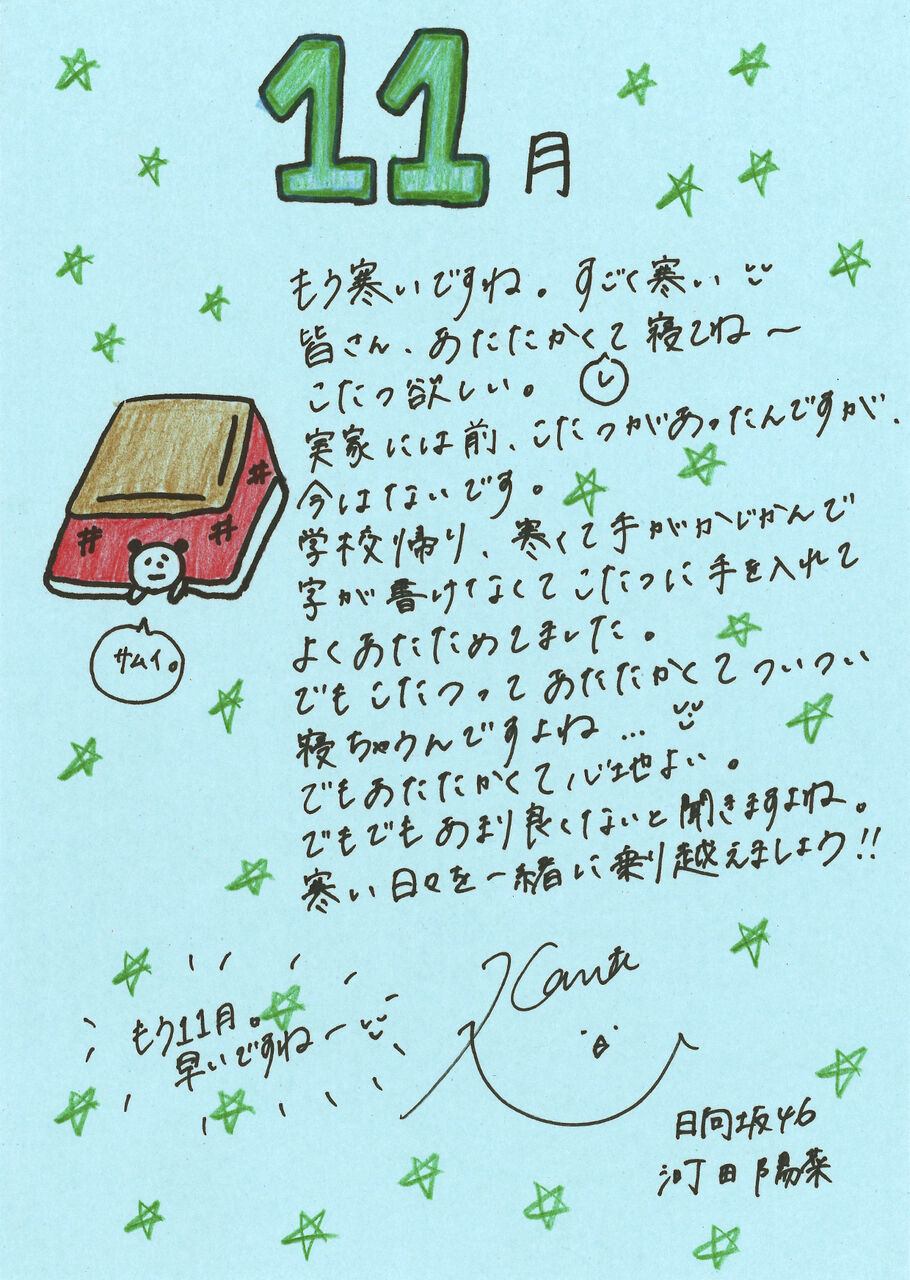 11月
もう寒いですね。すごく寒い
皆さん、あたたかくて寝てね〜
し
こたつ欲しい。
実家には前、こたつがあったんですが、
今はないです。
学校帰り、寒くて手がかじかんで
字が書けなくてこたつに手を入れて
よくあたためてました。
でもこたつってあたたかくてついつい
寝ちゃうんですよね…
でもあたたかくて心地よい。
でもでもあまり良くないと聞きますよね。
寒い日々を一緒に乗り越えましょう!!
サムイ。
もう11月。
早いですね〜
日向坂46
河田陽菜